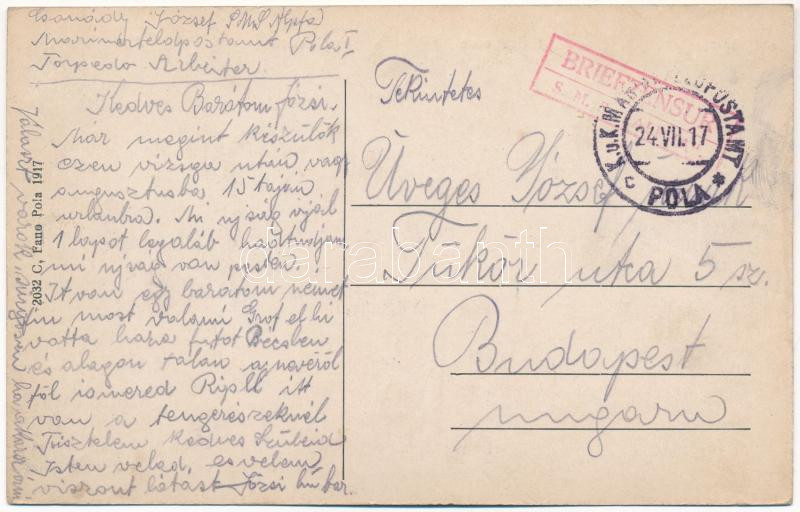 Csonády József S.M.S. Alpha
Marinefeldpostamt Pola I
Torpedo Arbeiter
Kedves Barátom Józsi.
Már megint készülök
ezen vizsga után vagy
augusztusba 15 táján
urlaubra. Mi ujság irjál
1 lapot legaláb hadtudjam
mi ujság van pesten.
Itt van egy baratom német
fiu most valami Grof el hi
vatta haza futot Bécsben
és alagon talán a nevéről
föl ismered Ripll itt
van a tengerészeknél
Tisztelem kedves Szüleid
Isten veled, es velem
viszont látást Józsi hű bar.
Választ várok
2032 C, Fano Pola 1917
Tekintetes
Üveges József
Tükör utca 5 sz.
Budapest
Ungarn
BRIEFZENSUR
S. M.
K.u.K. MARINEFELDPOSTAMT
24.VII.17
c POLA *
darabanth